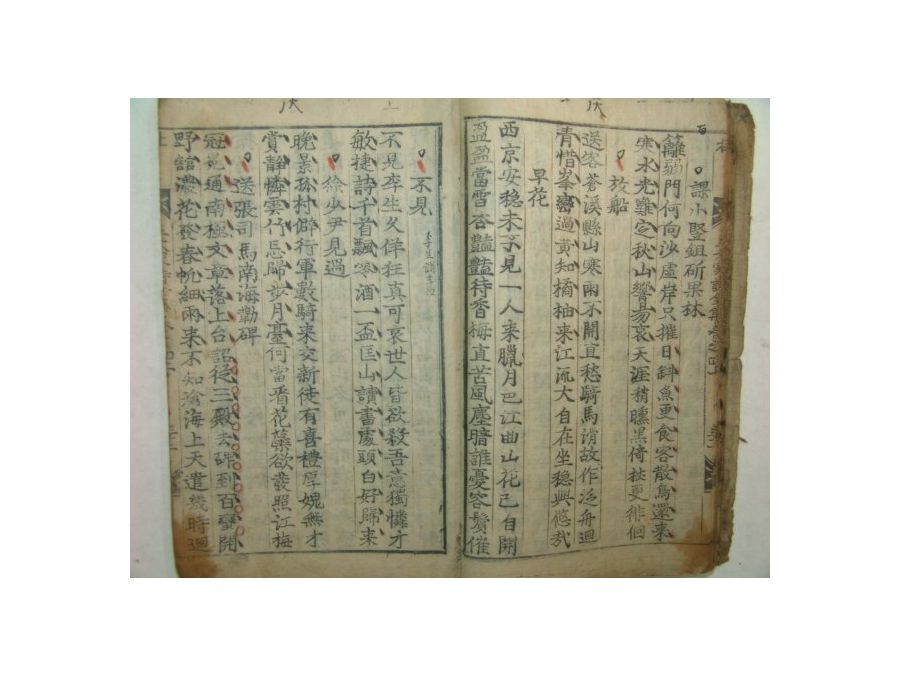 課小豎鉏斫果林
籬弱門何向沙虛岸只摧日斜魚更食客散鳥還來
寒水光難定秋山響易哀天涯稍曛黑倚杖更徘徊
放船
送客蒼溪縣山寒雨不開直愁騎馬滑故作泛舟迴
青惜峯巒過黃知橘柚來江流大自在坐穩興悠哉
早花
西京安穩未不見一人來臘月巴江曲山花已自開
盈盈當雪杏艷艷待香梅直苦風塵暗誰憂容鬢催
不見
不見李生久佯狂真可哀世人皆欲殺吾意獨憐才
敏捷詩千首飄零酒一盃匡山讀書處頭白好歸來
徐少尹見過
晚景孤村僻行軍數騎來交新徒有喜禮厚媿無才
賞靜憐雲竹忘歸步月臺何當看花蘂欲發照江梅
送張司馬南海勒碑
冠冕通南極文章落上台詔從三殿去碑到百蠻開
野舘濃花發春帆細雨來不知滄海上天遣幾時迴